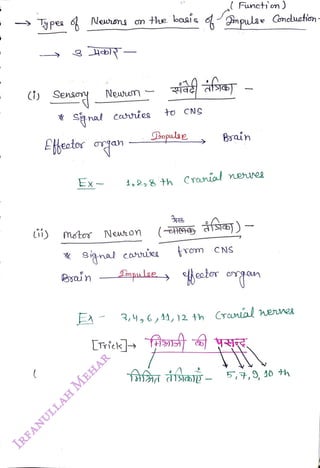 ( Function )
→ Types of Neurons on the basis of Impulse Conduction -
→ 3 प्रकार -
(i) Sensory Neuron - संवेदी तंत्रिका -
* Signal carries to CNS
Effector organ Impulse → Brain
Ex - 1, 2, 8 th Cranial nerves
प्रेरक
(ii) Motor Neuron ( चालक तंत्रिका ) -
* Signal carries from CNS
Brain Impulse → effector organ
Ex - 3, 4, 6, 11, 12 th Cranial nerves
[Trick] → मिताली की पसन्द
( मिश्रित तंत्रिकाएँ - 5, 7, 9, 10 th
IRFANULLAH MEHAR